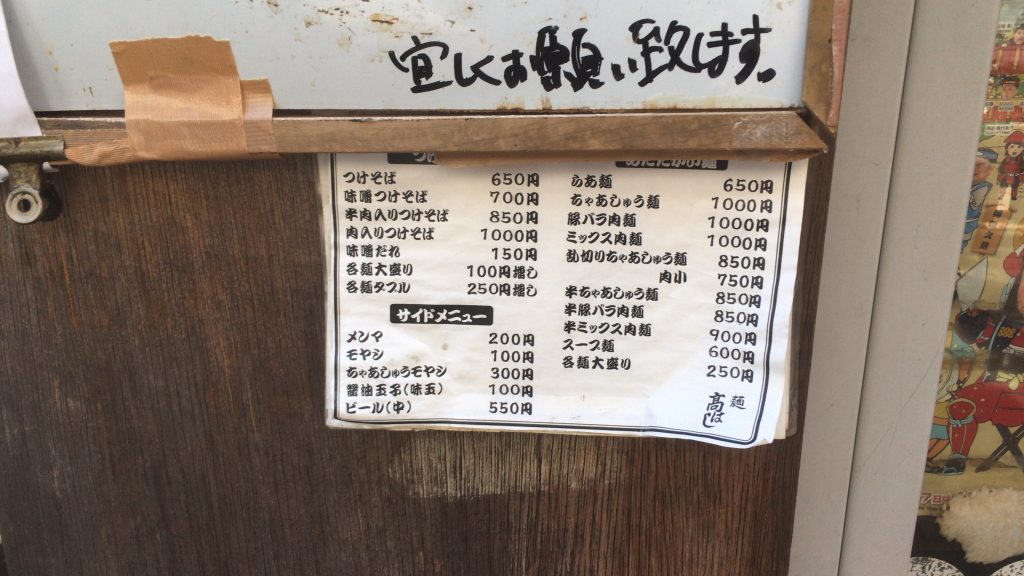 宜しくお願い致します。
あたたかい麺
つけそば 650円
味噌つけそば 700円
半肉入りつけそば 850円
肉入りつけそば 1000円
味噌だれ 150円
各麺大盛り 100円増し
各麺ダブル 250円増し
サイドメニュー
メンマ 200円
モヤシ 100円
ちゃあしゅうモヤシ 300円
醤油玉子(味玉) 100円
ビール(中) 550円
らあ麺 650円
ちゃあしゅう麺 1000円
豚バラ肉麺 1000円
ミックス肉麺 1000円
乱切りちゃあしゅう麺 850円
肉小 750円
半ちゃあしゅう麺 850円
半豚バラ肉麺 850円
半ミックス肉麺 900円
スープ麺 600円
各麺大盛り 250円
麺
高はし